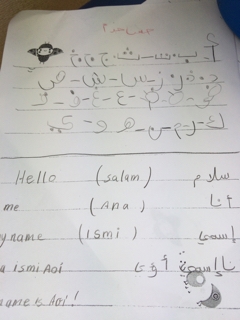 أ - ب - ت - ث - ج - ح - خ
د - ذ - ر - ز - س - ش - ص
ض - ط - ظ - ع - غ - ف - ق
ك - ل - م - ن - هـ - و - ي
Hello (salam) سلام
me (Ana) أنا
name (ismi) إسمي
ismi Aoi أنا إسمي أوي
name is Aoi!